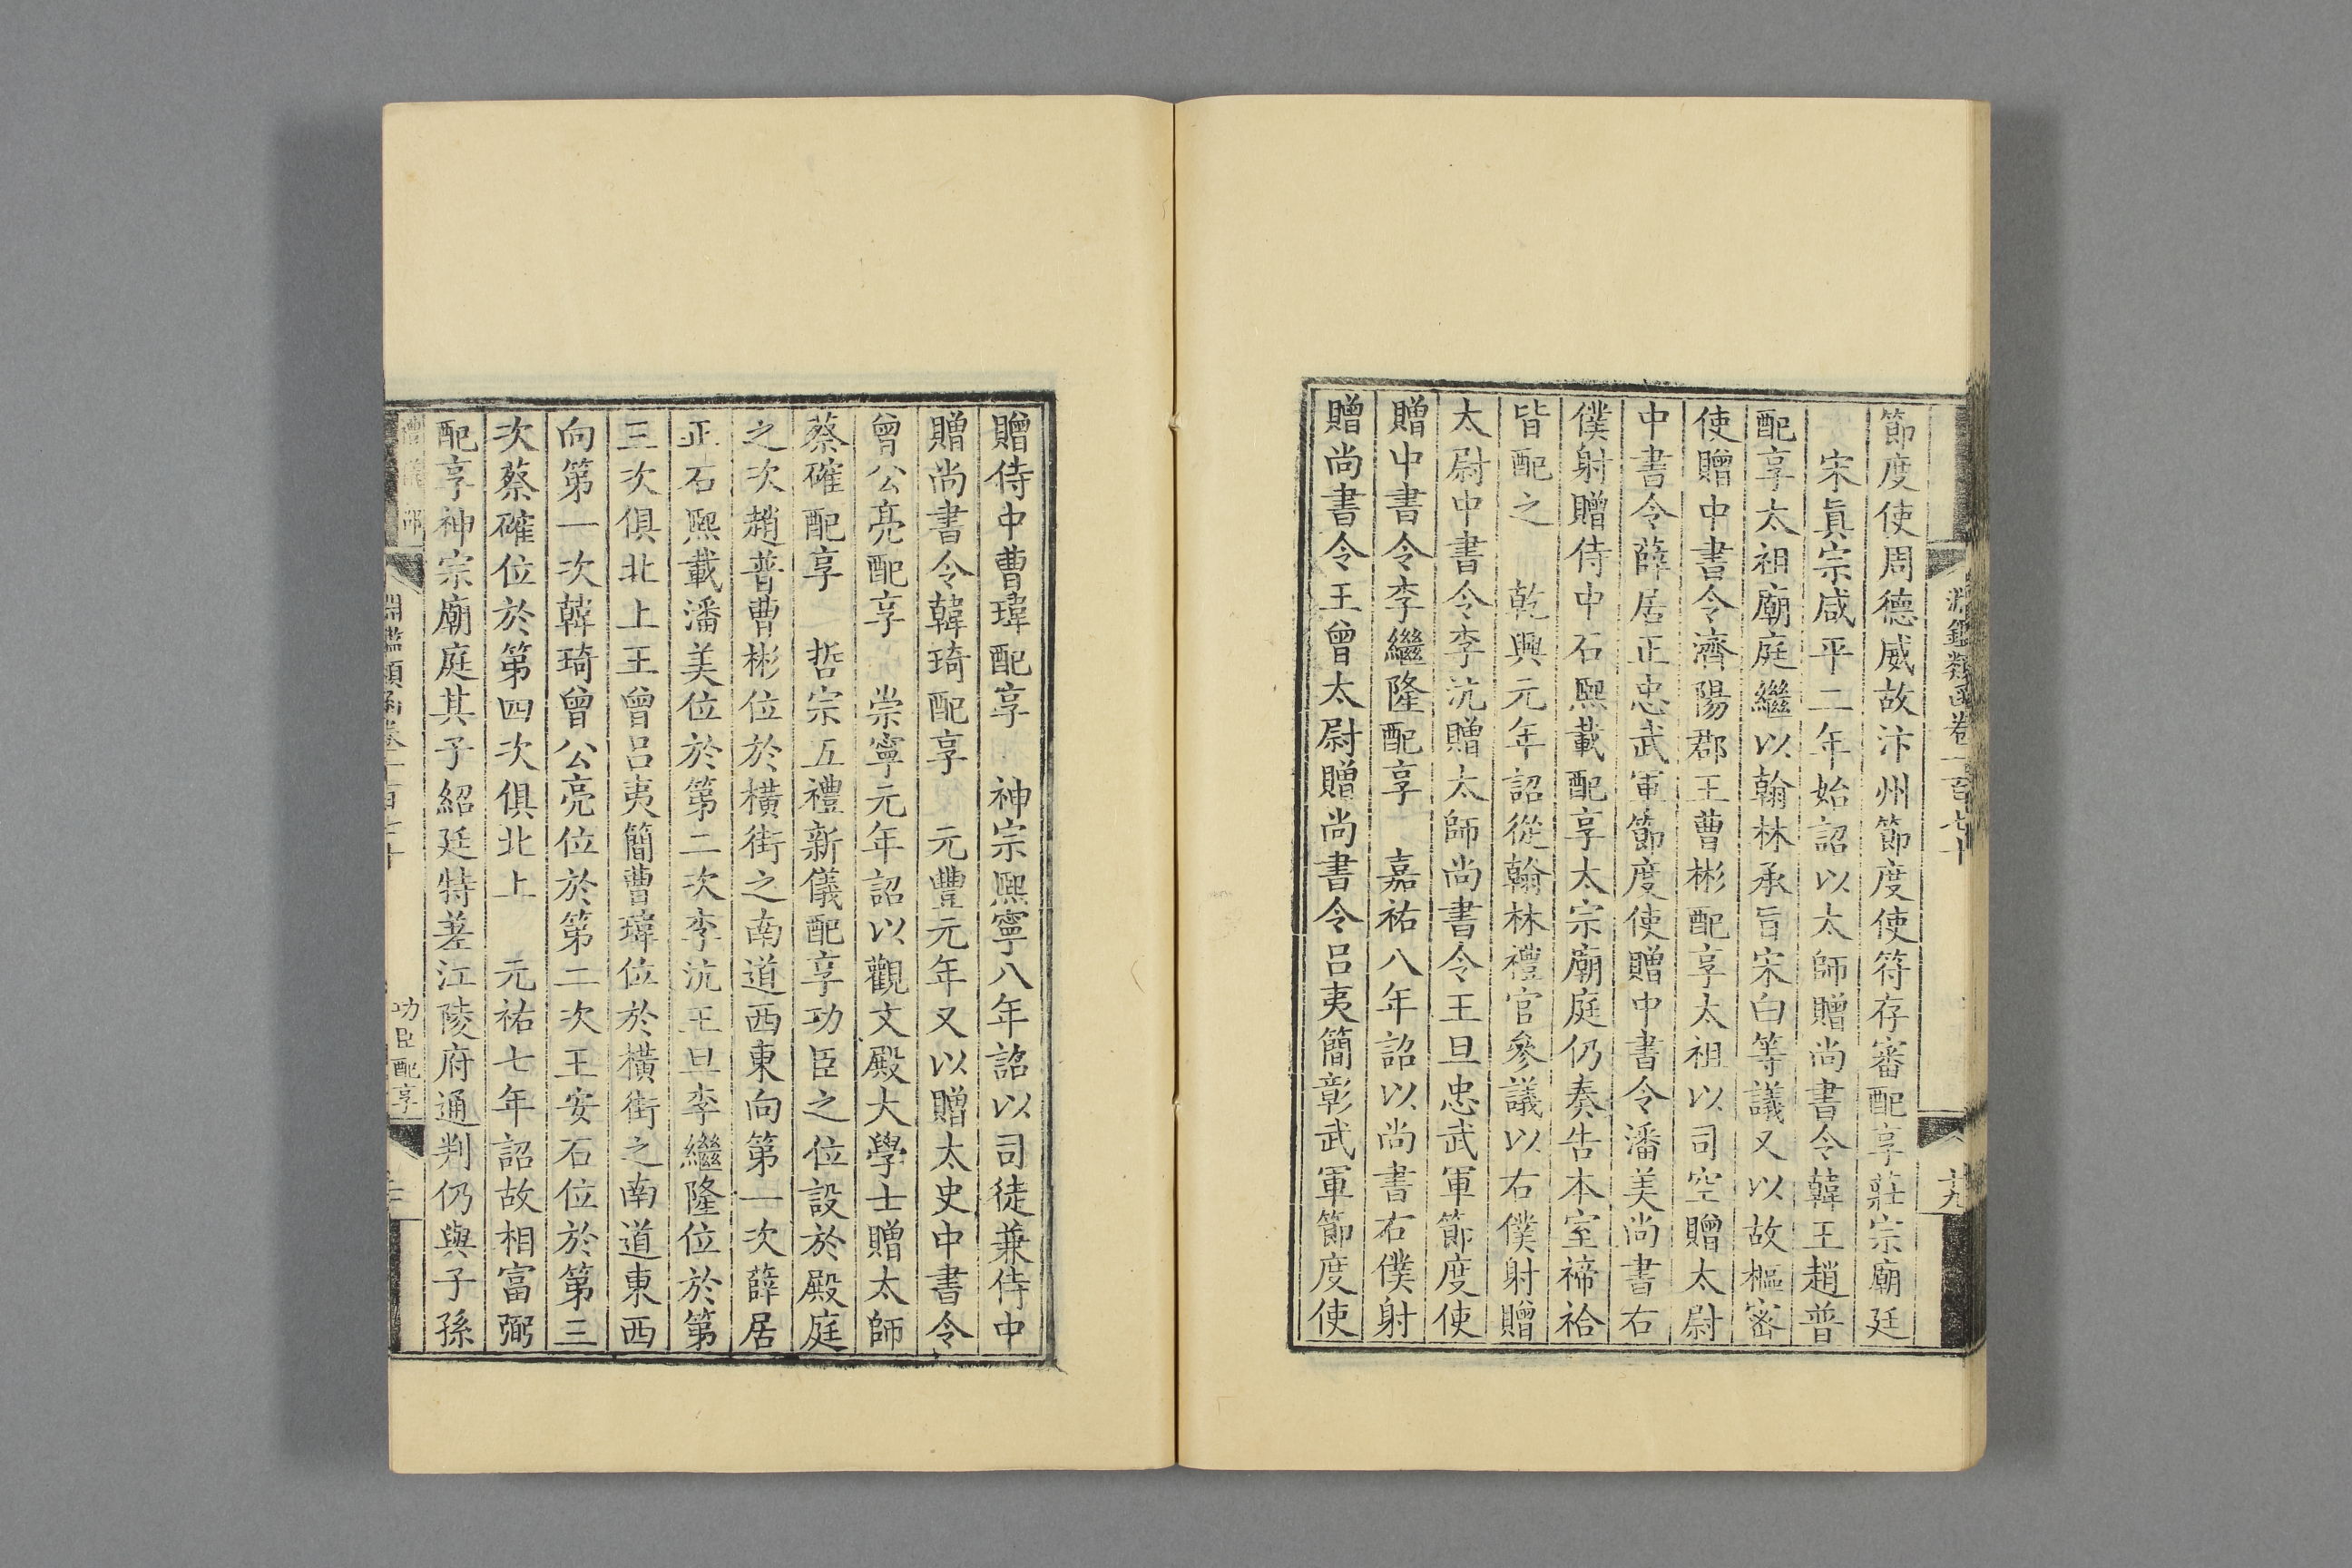 淵鑑類函卷一百六十
十九
節度使周德威故汴州節度使符存審配享莊宗廟廷
宋眞宗咸平二年始詔以太師贈尚書令韓王趙普
配享太祖廟庭繼以翰林承旨宋白等議又以故樞密
使贈中書令濟陽郡王曹彬配享太祖以司空贈太尉
中書令薛居正忠武軍節度使贈中書令潘美尚書右
僕射贈侍中石熙載配享太宗廟庭仍奏告本室禘祫
皆配之 乾興元年詔從翰林禮官參議以右僕射贈
太尉中書令李沆贈太師尚書令王旦忠武軍節度使
贈中書令李繼隆配享 嘉祐八年詔以尚書右僕射
贈尚書令王曾太尉贈尚書令呂夷簡彰武軍節度使
贈侍中曹瑋配享 神宗熙寧八年詔以司徒兼侍中
贈尚書令韓琦配享 元豐元年又以贈太史中書令
曾公亮配享 崇寧元年詔以觀文殿大學士贈太師
蔡確配享 哲宗五禮新儀配享功臣之位設於殿庭
之次趙普曹彬位於橫街之南道西東向第一次薛居
正石熙載潘美位於第二次李沆王旦李繼隆位於第
三次俱北上王曾呂夷簡曹瑋位於橫街之南道東西
向第一次韓琦曾公亮位於第二次王安石位於第三
次蔡確位於第四次俱北上 元祐七年詔故相富弼
配享神宗廟庭其子紹廷特差江陵府通判仍與子孫
功臣配享